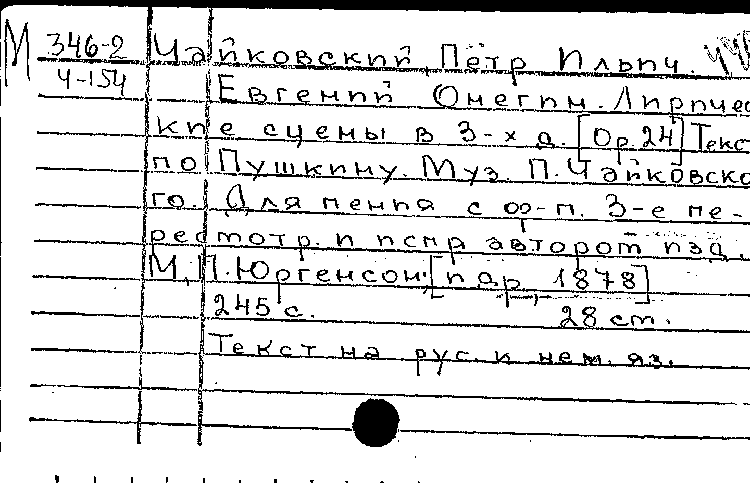 М 346-2 Чайковский, Пётр Ильич.
Ч-154 Евгений Онегин. Лиричес
кие сцены в 3-х д. [Ор. 24] Текс
по Пушкину. Муз. П. Чайковско
го. Для пения с ф-п. 3-е пе-
ресмотр. и испр автором изд.
М, П. Юргенсон, [п др. 1878]
245 с. 28 ст.
Текст на рус. и нем. яз.